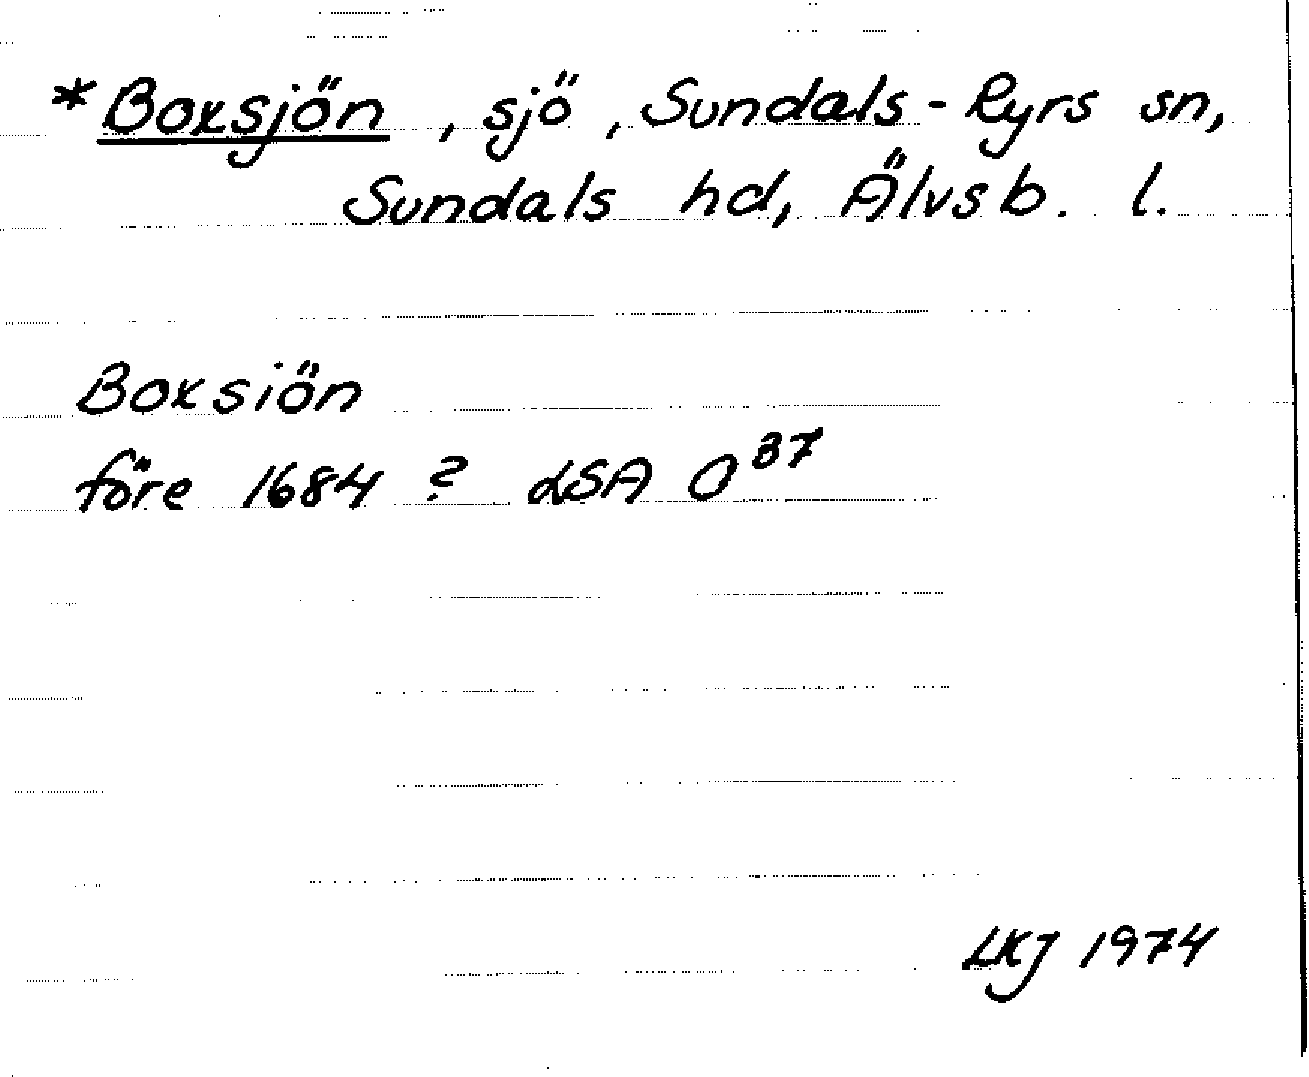 *Boksjön, sjö, Sundals-Ryrs sn,
Sundals hd, Älvsb. l.
Boksiön
före 1684? LSA O37
LKJ 1974